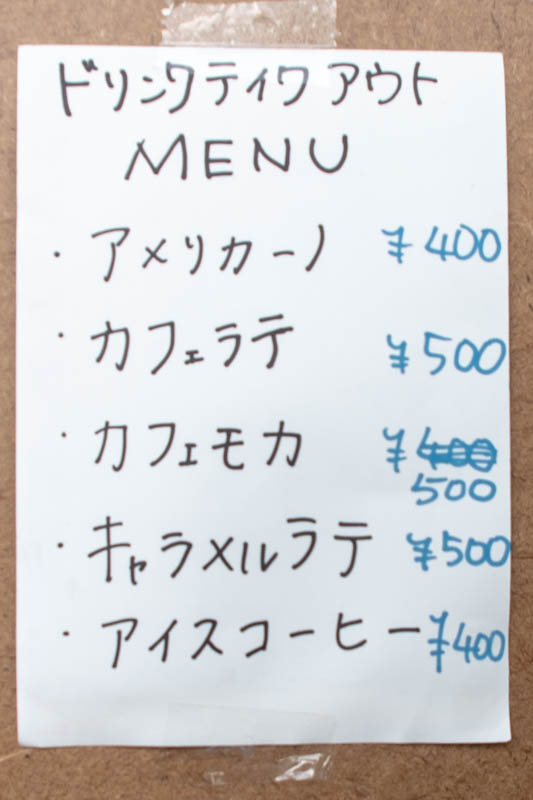 ドリンクティクアウト
MENU
・アメリカーノ ¥400
・カフェラテ ¥500
・カフェモカ ¥400
500
・キャラメルラテ ¥500
・アイスコーヒー ¥400